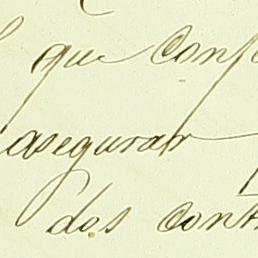 que conf
asegurar
dos cont